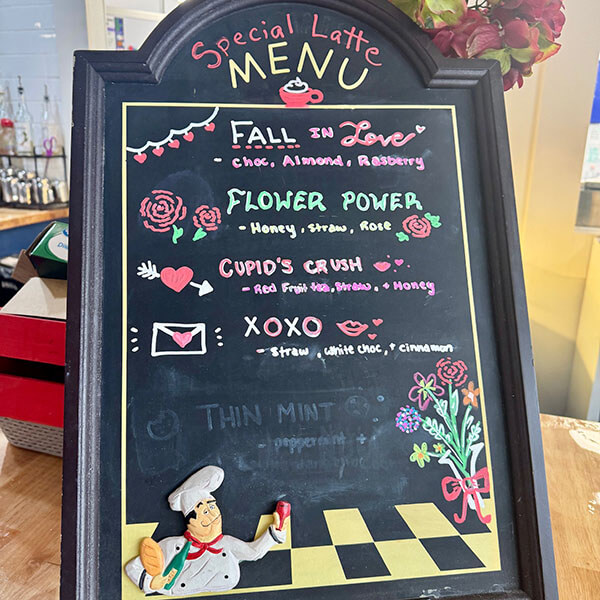 Special Latte
MENU
FALL IN Love
- choc, Almond, Rasberry
FLOWER POWER
- Honey, straw, Rose
CUPID'S CRUSH
- Red Fruit tea, straw, + Honey
XOXO
- straw, white choc, + cinnamon
THIN MINT
- peppermint +